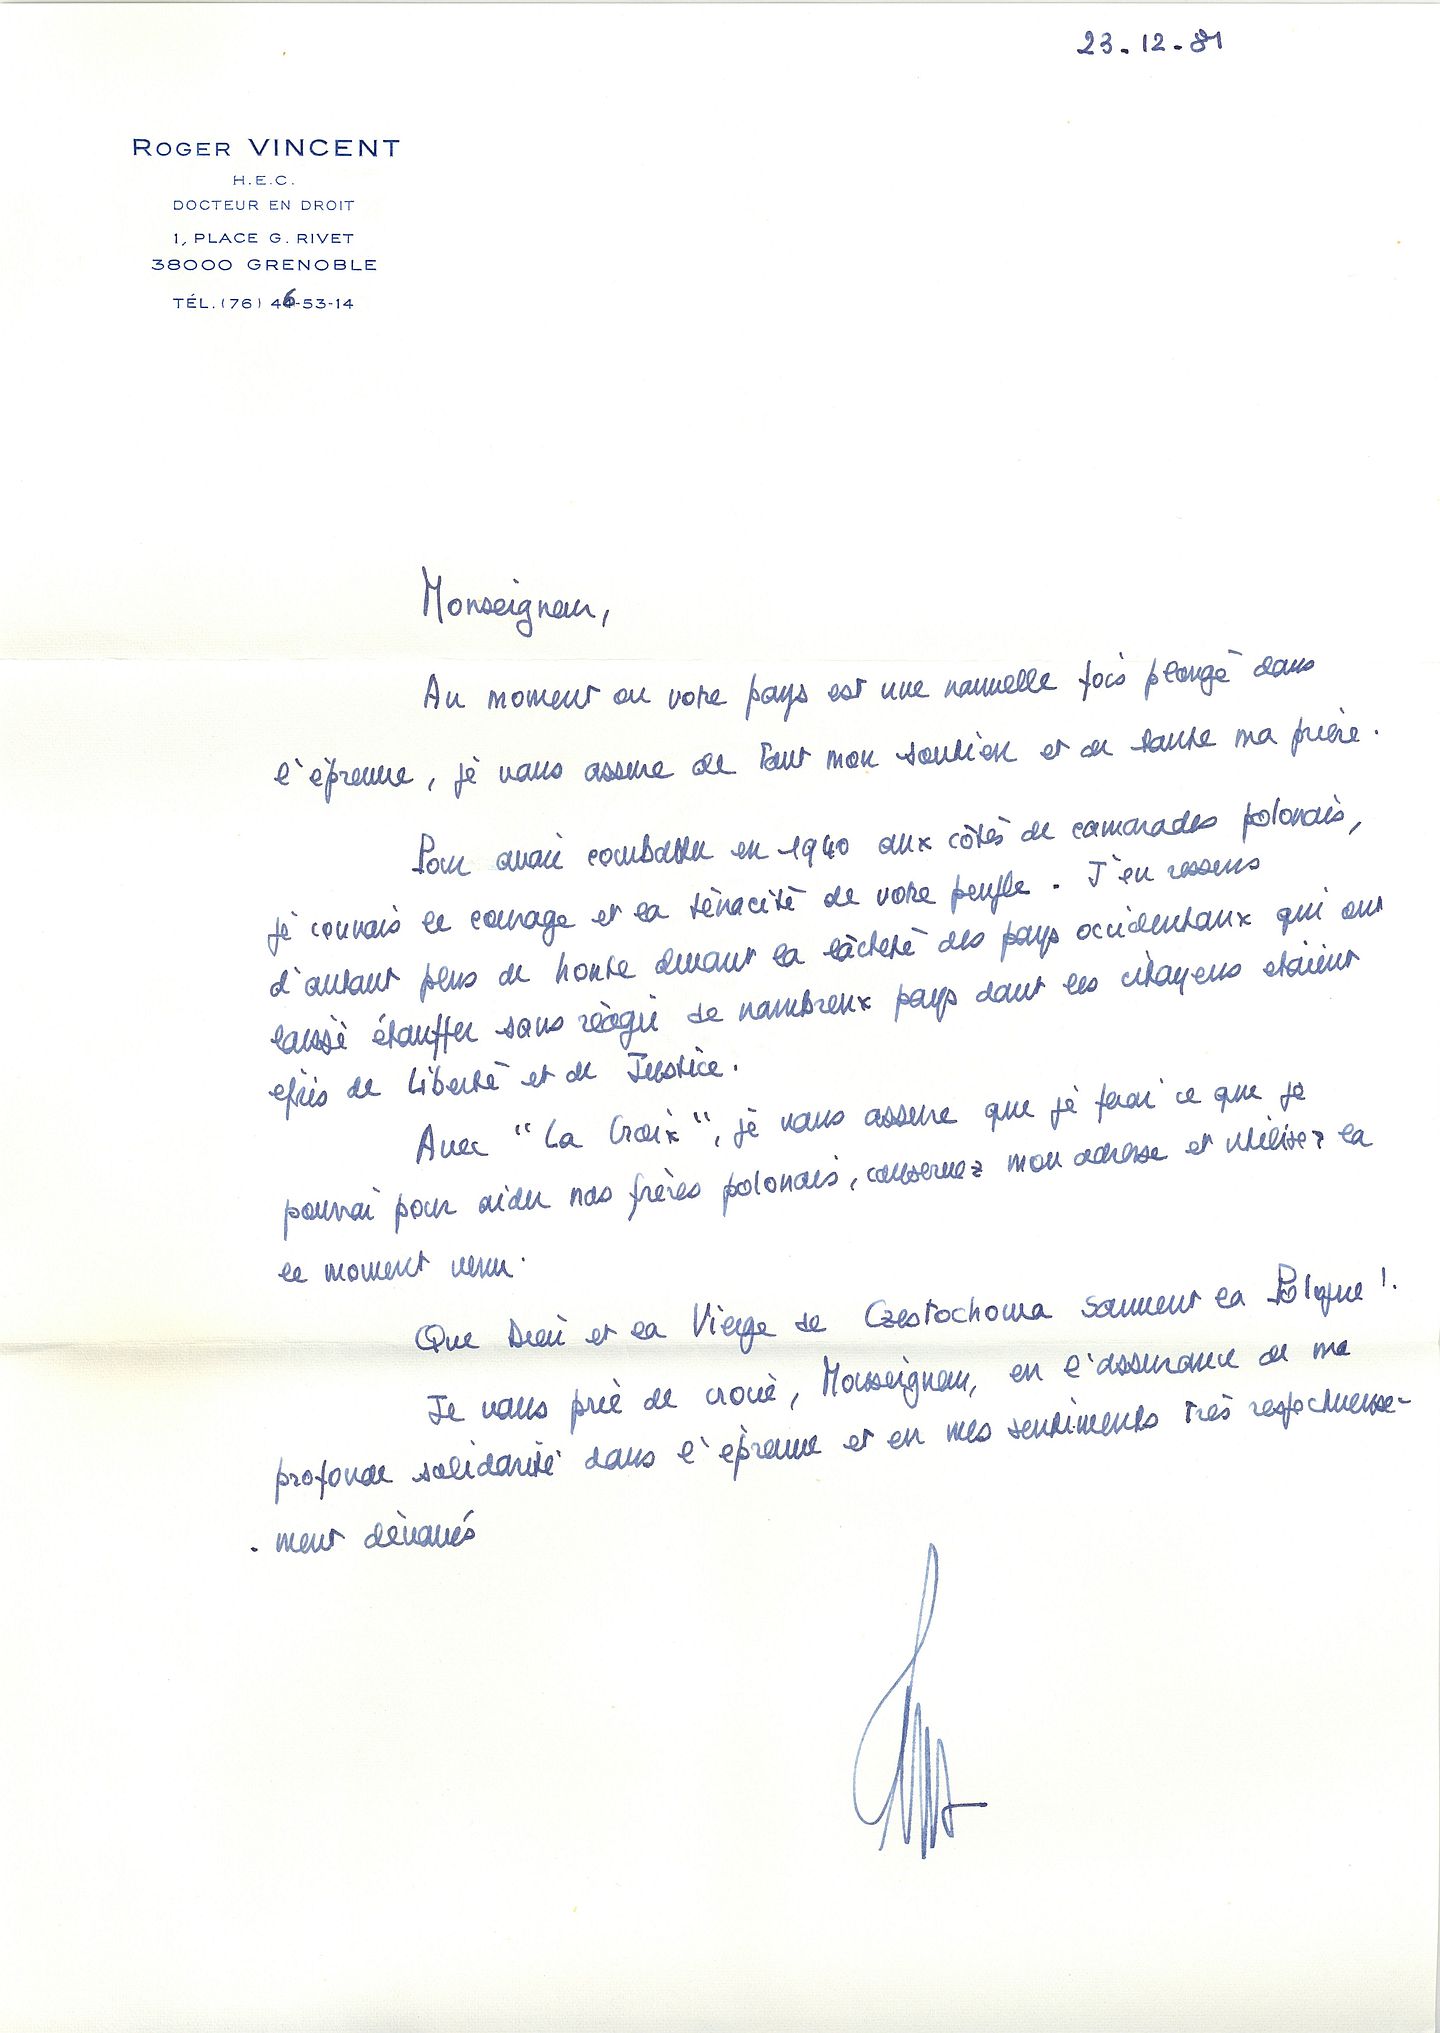 23-12-81
ROGER VINCENT
H.E.C.
DOCTEUR EN DROIT
1, PLACE G. RIVET
38000 GRENOBLE
TÉL. (76) 46-53-14
Monseigneur,
Au moment ou votre pays est une nouvelle fois plongé dans
l'épreuve, je vous assure de tout mon soutien et de toute ma prière.
Pour avoir combattu en 1940 aux côtés de camarades polonais,
je connais le courage et la ténacité de votre peuple. J'en ressens
d'autant plus de honte devant la lâcheté des pays occidentaux qui ont
laissé étouffer sans réagir de nombreux pays dont les citoyens etaient
epris de Liberté et de Justice.
Avec "La Croix", je vous assure que je ferai ce que je
pourrai pour aider nos frères polonais, conservez mon adresse et utilisez la
le moment venu.
Que Dieu et la Vierge de Czestochowa sauvent la Pologne !.
Je vous prie de croire, Monseigneur, en l'assurance de ma
profonde solidarité dans l'épreuve et en mes sentiments très respectueuse-
ment dévoués